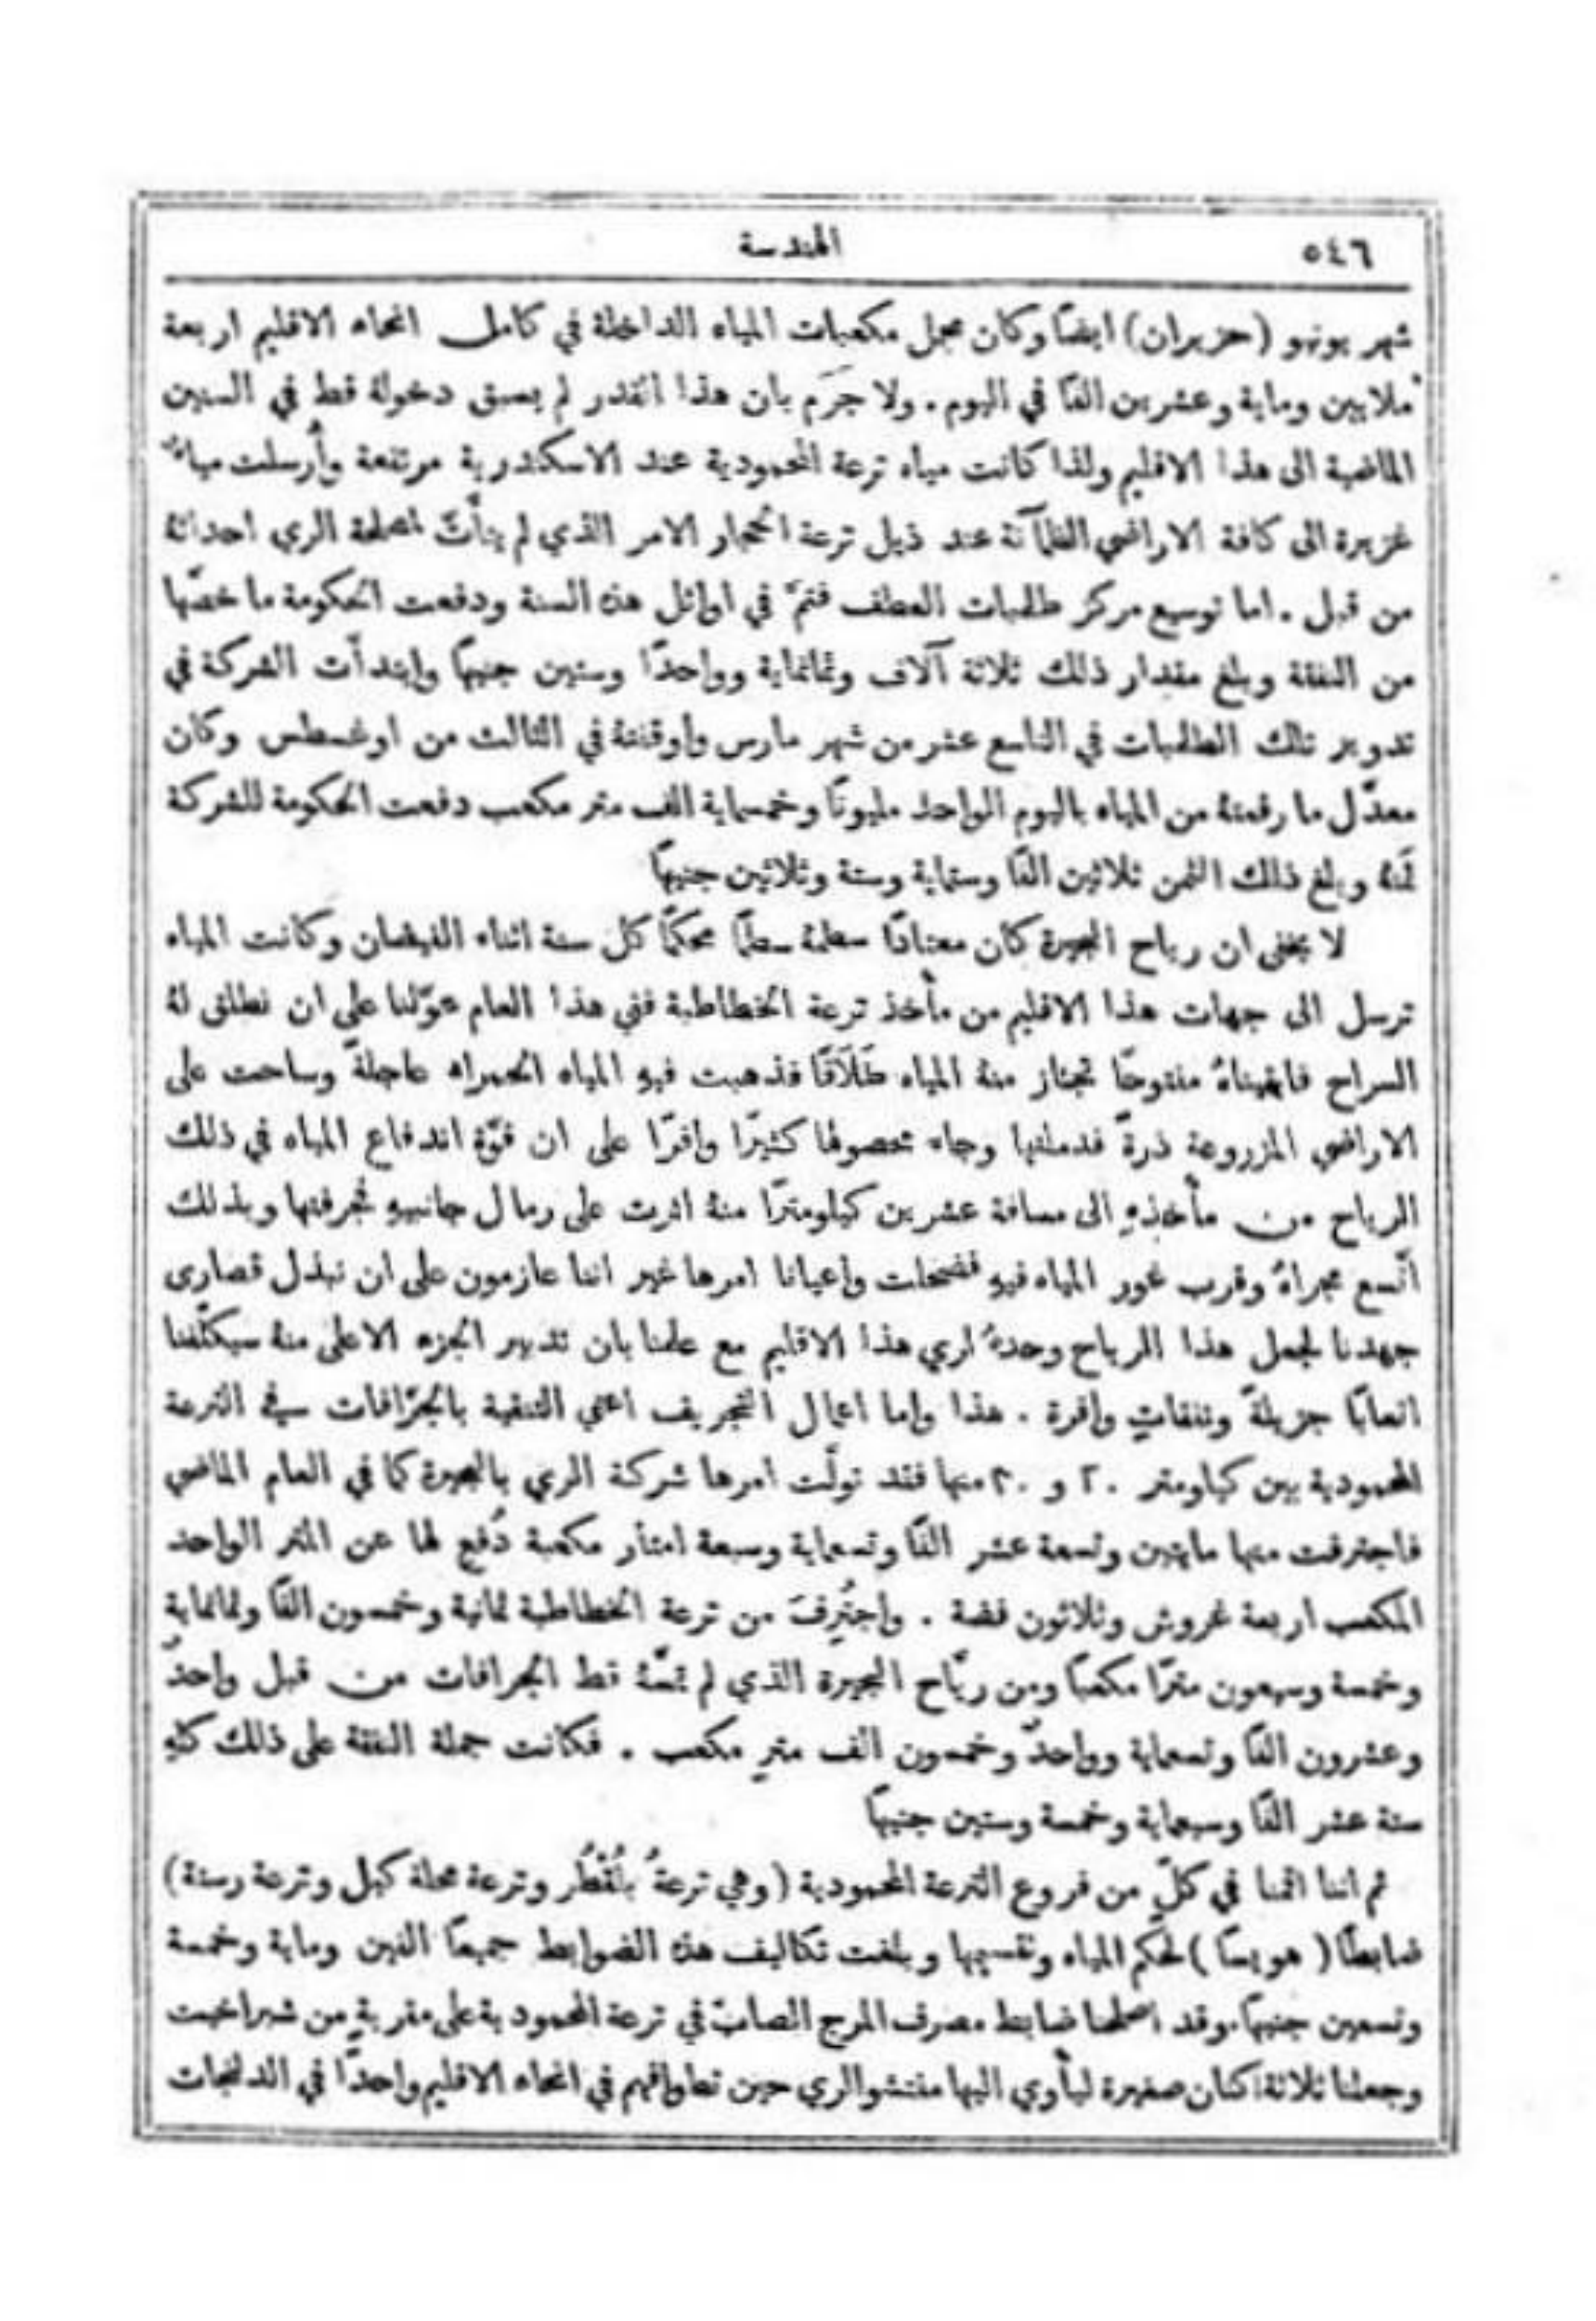 ٥٤٦
الهندسة
شهر يونيو (حزيران) ايضًا وكان مجمل مكعبات المياه الداخلة في كامل انحاء الاقليم اربعة
ملايين وماية وعشرين الفًا في اليوم. ولا جَرَم بان هذا القدر لم يسبق دخولهُ قط في السنين
الماضية الى هذا الاقليم ولذا كانت مياه ترعة المحمودية عند الاسكندرية مرتفعة وأُرسلت مياهٌ
غزيرة الى كافة الاراضي الظمآنة عند ذيل ترعة الحجار الامر الذي لم يتأتَّ لمصلحة الري احداثهُ
من قبل. اما توسيع مركز طلمبات العطف فتمَّ في اوائل هذه السنة ودفعت الحكومة ما خصّها
من النفقة وبلغ مقدار ذلك ثلاثة آلاف وثمانماية وواحدًا وستين جنيهًا وابتدأت الشركة في
تدوير تلك الطلمبات في التاسع عشر من شهر مارس واوقفتهُ في الثالث من اوغسطس وكان
معدَّل ما رفعتهُ من المياه باليوم الواحد مليونًا وخمسماية الف متر مكعب دفعت الحكومة للشركة
ثمنهُ وبلغ ذلك الثمن ثلاثين الفًا وستماية وستة وثلاثين جنيهًا
لا يخفى ان رياح البحيرة كان معتادًا سطمهُ سطمًا محكمًا كل سنة اثناء الفيضان وكانت المياه
ترسل الى جهات هذا الاقليم من مأخذ ترعة الخطاطبة ففي هذا العام عوّلنا على ان نطلق لهُ
السراح فابقيناهُ مفتوحًا تجتاز منهُ المياه طَلَاقًا فذهبت فيهِ المياه الحمراء عاجلةً وساحت على
الاراضي المزروعة ذرةً فدملتها وجاء محصولها كثيرًا وافرًا على ان قوّة اندفاع المياه في ذلك
الرياح من مأخذهِ الى مسافة عشرين كيلومترًا منهُ اثرت على رمال جانبيهِ فجرفتها وبذلك
اتّسع مجراهُ وقرب غور المياه فيهِ فضحلت واعيانا امرها غير اننا عازمون على ان نبذل قصارى
جهدنا لجعل هذا الرياح وحدهُ لري هذا الاقليم مع علمنا بان تدبير الجزء الاعلى منهُ سيكلّفنا
اتعابًا جزيلةً ونفقاتٍ وافرة. هذا واما اعمال التجريف اعني التنقية بالجرّافات في الترعة
المحمودية بين كيلومتر ٢٠ و ٣٠ منها فقد تولّت امرها شركة الري بالبحيرة كما في العام الماضي
فاجترفت منها مايتين وتسعة عشر الفًا وتسعماية وسبعة امتار مكعبة دُفع لها عن المتر الواحد
المكعب اربعة غروش وثلاثون فضة. واجتُرِفَ من ترعة الخطاطبة ثمانية وخمسون الفًا وثمانماية
وخمسة وسبعون مترًا مكعبًا ومن ريّاح البحيرة الذي لم تمسّهُ قط الجرافات من قبل واحدٌ
وعشرون الفًا وتسعماية وواحدٌ وخمسون الف مترٍ مكعب. فكانت جملة النفقة على ذلك كلهِ
ستة عشر الفًا وسبعماية وخمسة وستين جنيهًا
ثم اننا اقمنا في كلٍّ من فروع الترعة المحمودية (وهي ترعةُ بلُقْطُر وترعة محلة كيل وترعة رستة)
ضابطًا (هويسًا) لحكم المياه وتقسيمها وبلغت تكاليف هذه الضوابط جميعًا الفين وماية وخمسة
وتسعين جنيهًا. وقد اصلحنا ضابط مصرف المرج الصابّ في ترعة المحمودية على مقربةٍ من شبراخيت
وجعلنا ثلاثة اكنان صغيرة ليأوي اليها مفتشو الري حين تطوافهم في انحاء الاقليم واحدًا في الدلنجات